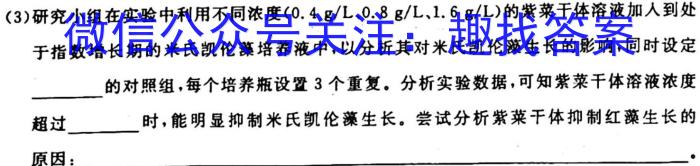 (3)研究小组在实验中利用不同浓度(0.4 g/L、0.8 g/L、1.6 g/L)的紫菜干体溶液加入到处
于指数增长期的米氏凯伦藻培养液中,以分析其对米氏凯伦藻生长的影响,同时设定
微信公众号关注:趣找答案
________的对照组,每个培养瓶设置 3 个重复。分析实验数据,可知紫菜干体溶液浓度
超过________时,能明显抑制米氏凯伦藻生长。尝试分析紫菜干体抑制红藻生长的
原因:________________。